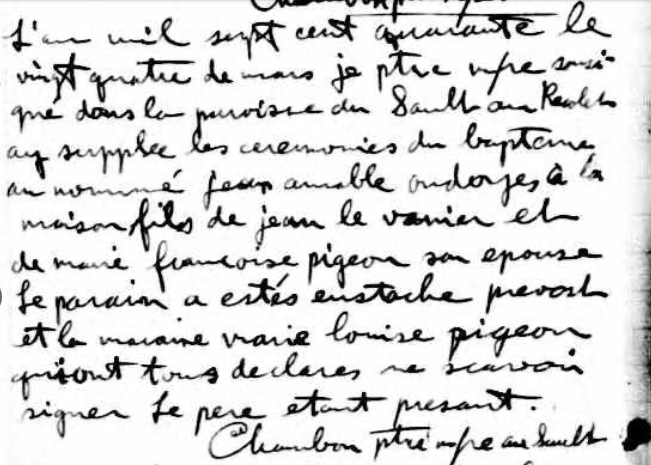 L'an mil sept cent quarante le
vingt quatre de mars je ptre mpre sousi-
gné dans la paroisse du Sault au Recolets
ay supplee les ceremonies du baptème
au nommé jean amable ondoyes à la
maison fils de jean le vanier et
de marie francoise pigeon son epouse
Le parain a estés eustache prevost
et la maraine marie louise pigeon
qui ont tous declares ne scavoir
signer Le pere etant presant.
Chambon ptre mpre au Sault